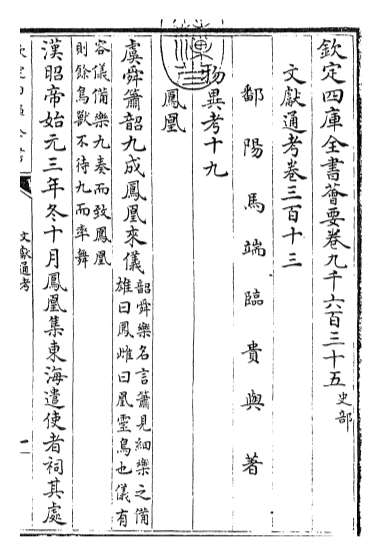 欽定四庫全書薈要卷九千六百三十五 史部
文獻通考卷三百十三
鄱陽馬端臨貴與著
物異考十九
鳳凰
虞舜簫韶九成鳳凰來儀韶舜樂名言簫見細樂之備
雄曰鳳雌曰凰靈鳥也儀有
容儀備樂九奏而致鳳凰
則餘鳥獸不待九而率舞
漢昭帝始元三年冬十月鳳凰集東海遣使者祠其處
文獻通考
一